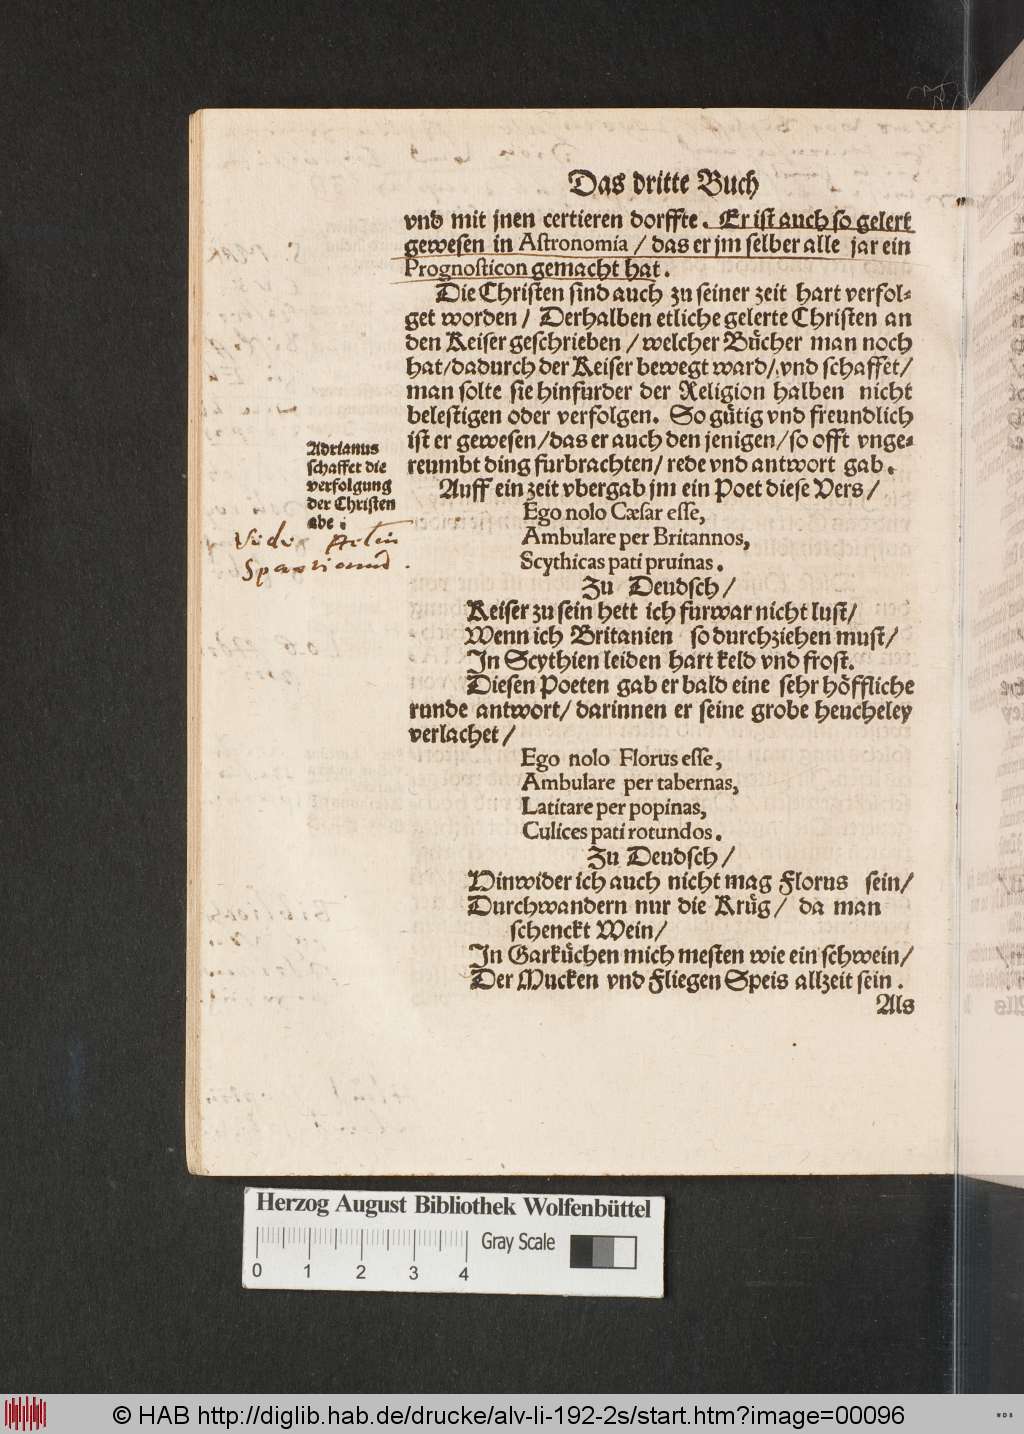 Das dritte Buch
vnd mit jnen certieren dorffte. Er ist auch so gelert
gewesen in Astronomia / das er jm selber alle jar ein
Prognosticon gemacht hat.
Die Christen sind auch zu seiner zeit hart verfol-
get worden / Derhalben etliche gelerte Christen an
den Keiser geschrieben / welcher Bücher man noch
hat / dadurch der Keiser bewegt ward / vnd schaffet /
man solte sie hinfurder der Religion halben nicht
belestigen oder verfolgen. So gütig vnd freundlich
ist er gewesen / das er auch den jenigen / so offt vnge-
reumbt ding furbrachten / rede vnd antwort gab.
Adrianus
schaffet die
verfolgung
der Christen
abe :
Vide
Auff ein zeit vbergab jm ein Poet diese Vers /
Ego nolo Cæsar esse,
Ambulare per Britannos,
Scythicas pati pruinas.
Zu Deudsch /
Keiser zu sein hett ich furwar nicht lust /
Wenn ich Britanien so durchziehen must /
In Scythien leiden hart keld vnd frost.
Diesen Poeten gab er bald eine sehr höffliche
runde antwort / darinnen er seine grobe heucheley
verlachet /
Ego nolo Florus esse,
Ambulare per tabernas,
Latitare per popinas,
Culices pati rotundos.
Zu Deudsch /
Hinwider ich auch nicht mag Florus sein /
Durchwandern nur die Krüg / da man
schenckt Wein /
In Garküchen mich mesten wie ein schwein /
Der Mucken vnd Fliegen Speis allzeit sein.
Als
Herzog August Bibliothek Wolfenbüttel
Gray Scale
0 1 2 3 4
© HAB http://diglib.hab.de/drucke/alv-li-192-2s/start.htm?image=00096